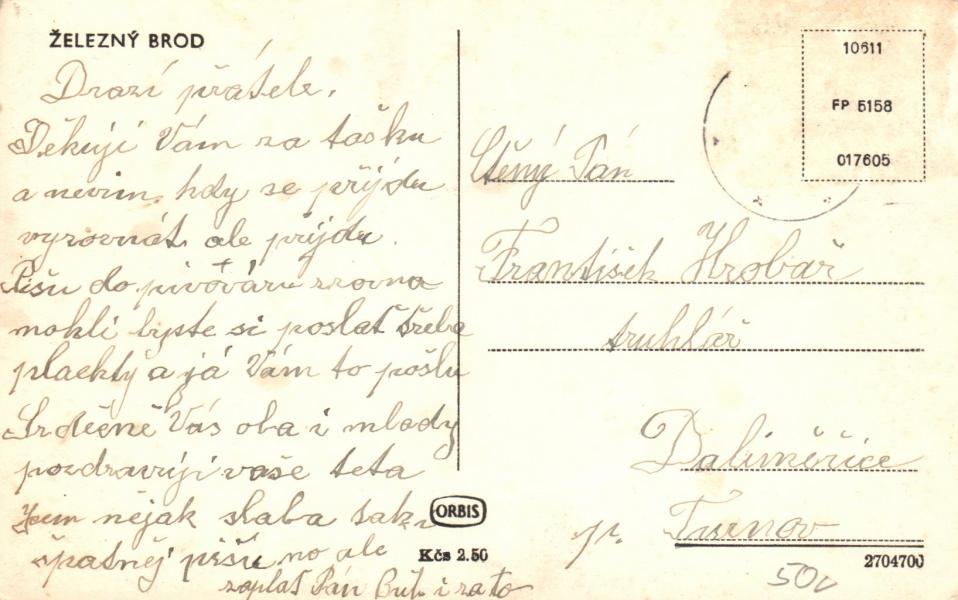 ŽELEZNÝ BROD
Drazí přátele,
Děkuji Vám za tašku
a nevim kdy se přijdu
vyrovnát ale prijdu.
Pišu do pivováru zrovna
mokli byste si poslat třeba
plackty a já Vám to pošlu
Srdečně Vás oba i mlady
pozdravuji vaše teta
Jsem nějak slaba tak
špatněj píšu no ale
zaplať Pán Bůh i za to
ORBIS
Kčs 2.50
10611
FP 5158
017605
Ctěný Pán
František Hrobař
truhlář
Daliměřice
p. Turnov
2704700
50